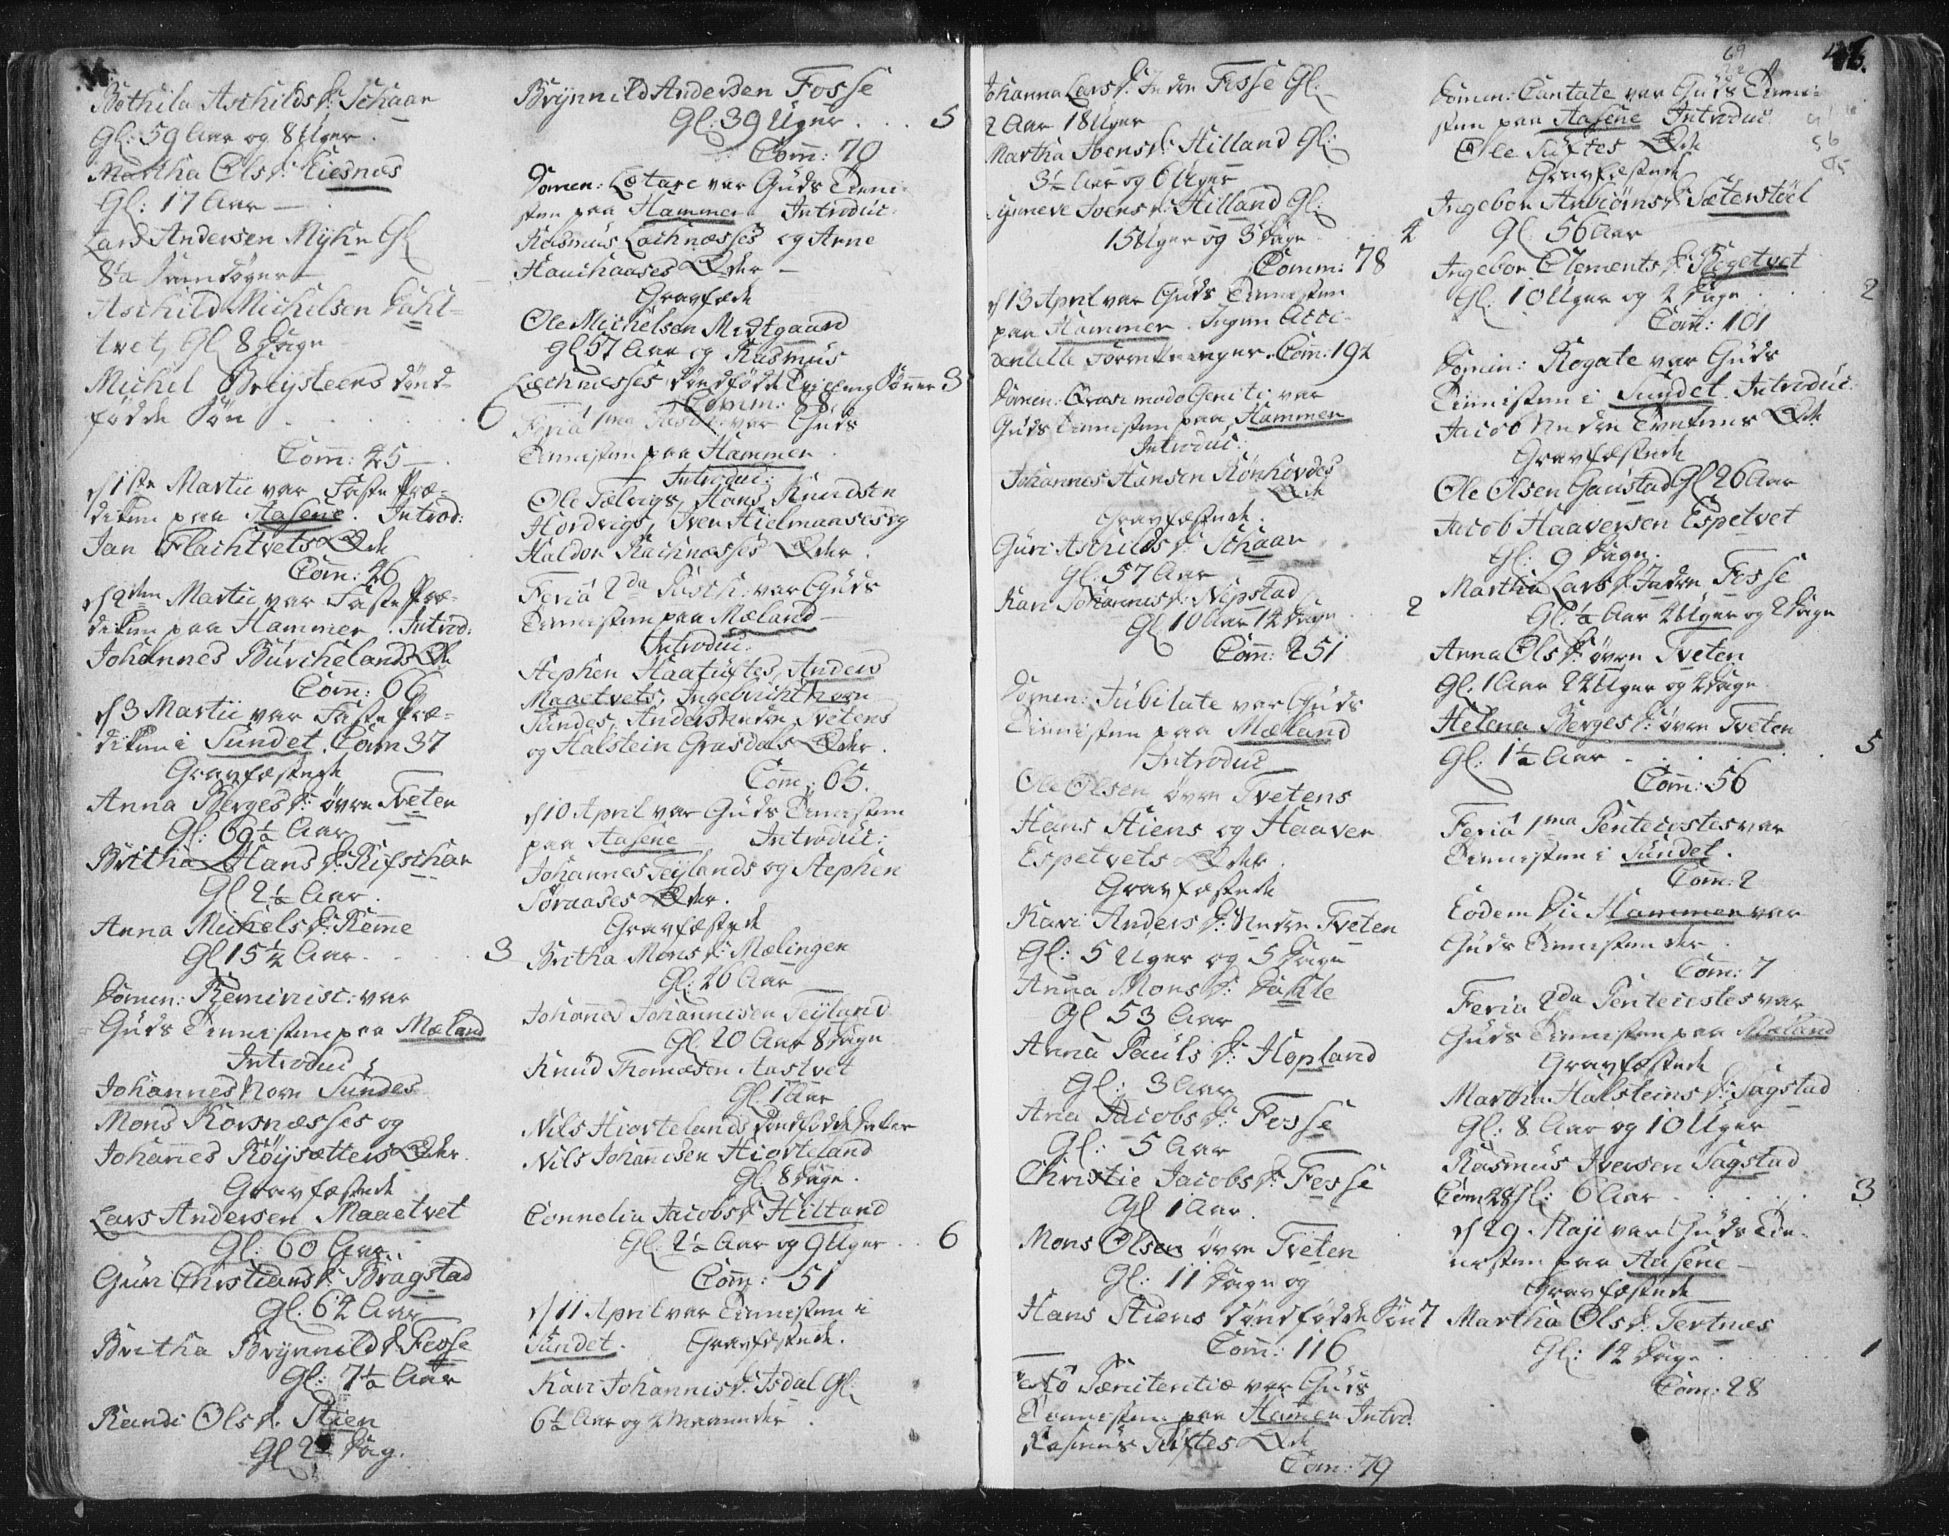 Bothila Aschilds D: Schaar
Gl: 59 Aar og 8 Uger.
Martha Ols D: Eiesnæs
Gl: 17 Aar —
Lars Andersen Myhn Gl
8 ½
Aschild Michelsen Dahl-
tvet, Gl 8 Dage
Michel Breysteens dönd-
fødde Søn . . . . . 6
Com: 45 —
d 1ste Martii var Faste Præ-
diken paa Aasene. Introd:
Jan Flachtvets Qde
Com: 46
d 2den Martii var Faste Præ-
diken paa Hammer. Introd:
Johannes Burchelands Qde
Com: 66
d 3 Martii var Faste Præ-
diken i Sundet. Com 37
Gravfæstede
Anna Børges D: øvre Tveten
Gl: 69 ½ Aar
Britha Hans D: Rifschar
Gl 2 ½ Aar.
Anna Michels D: Remme
Gl 15 ½ Aar . . . 3
Domin: Reminisc: var
Guds Tienisten paa Mæland
Introduc
Johannes Norn Sundes
Mons Rosnæsses og
Johannes Röysætters Qder.
Gravfæstede
Lars Andersen Maaetvet
Gl: 60 Aar.
Guri Christians D: Bragstad
Gl: 62 Aar
Britha Brynnild D: Fosse
Gl: 7 ½ Aar
Randi Ols D: Stien
Gl 2 Dag.
Brynnild Andersen Fosse
Gl: 39 Uger . . . 5
Com: 70
Domin: Lætare var Guds Tieni-
sten paa Hammer. Introduc:
Rasmus Lochnæsses og Arne
Hauchaases Qder —
Gravfæste
Ole Michelsen Midtgaard
Gl 57 Aar og Rasmus
Lochnesses döndfödde Tvilling Sønner 3
Comm: 88
Feria 1ma Pasch: var Guds
Tienisten paa Hammer.
Introduc:
Ole Tælvigs, Hans Knudsen
Hordvigs, Iven Hielmaases og
Haldor Rachnæsses Qder.
Feria 2da Pasch: var Guds
Tienisten paa Mæland
Introduc:
Stephen Haatuftes, Anders
Maaetvets, Ingebricht Norn
Sundes, Anders Nedre Tvetens
og Halstein Grasdals Qder.
Com: 65.
d 10 April var Guds Tienisten
paa Aasene Introduc:
Johannes Teylands og Stephen
Soraases Qder.
Gravfæstede
Britha Mons D: Mælingen
Gl: 26 Aar
Johannes Johannesen Teyland
Gl. 20 Aar 8 Dage
Knud Thomæsen Aastvet
Gl. 1 Aar
Nils Hiortelands döndfödde Datter
Nils Johannesen Hiorteland
Gl 8 Dage.
Connolia Jacobs D: Hilland
Gl: 2 ½ Aar og 9 Uger . . 6
Com: 51
d 11 April var Tienisten i
Sundet. Gravfæstede.
Kari Johannis D: Isdal Gl:
6 ½ Aar og 2 Maaneder.
46.
Johanna Lars D: Indre Fosse Gl:
2 Aar 18 Uger
Martha Ivens D: Hilland Gl:
3 ½ Aar og 6 Uger
Synneve Ivens D: Hilland Gl:
15 Uger og 3 Dage . . 4
Comm: 78
d 13 April var Guds Tienisten
paa Hammer. Ingen Acci-
dentelle Forretninger. Com: 192
Domin: Qvasimodo Geniti var
Guds Tienisten paa Hammer
Introduc:
Johannes Hansen Rönhovdes
Qde
Gravfæstede.
Guri Aschilds D: Schaar
Gl: 57 Aar
Kari Johannis D: Nepstad
Gl 10 Aar 12 Dage 2
Com: 251
Domin: Jubilate var Guds
Tienisten paa Mæland
Introduc
Ole Olsen øvre Tvetens
Hans Stiens og Haaver
Espetvets Qder.
Gravfæstede
Kari Anders D: Nedre Tveten
Gl: 5 Uger og 5 Dage
Anna Mons D: Dahle
Gl 53 Aar
Anna Pauls D: Hopland
Gl: 3 Aar
Ana Jacobs D: Fosse
Gl: 5 Aar
Christie Jacobs D: Fosse
Gl 1 Aar.
Mons Olsen øvre Tveten
Gl: 11 Dage og
Hans Stiens döndfödde Sön 7
Com: 116
Festo Pæniteritiæ var Guds
Tienisten paa Hamer Introd:
Rasmus Tuftes Qde
Com: 79
Domin: Cantate var Guds Tieni-
sten paa Aasene Introduc
Ole Tuftes Qde
Gravfæstede
Ingebor Anbiörns D: Sæterstöl
Gl. 56 Aar
Ingebor Clements D: Bøgetvet
Gl: 10 Uger og 2 Dage . . 2
Com: 101
Domin: Rogate var Guds
Tienisten i Sundet. Introduc:
Jacob Nedre Tvetens Qde
Gravfæstede
Ole Olsen Gaustad Gl 26 Aar
Jacob Haaversen Espetvet
Gl: 9 Dage.
Martha Lars D: Indre Fosse
Gl: ½ Aar 2 Uger og 2 Dage
Anna Ols D: øvre Tveten
Gl. 1 Aar 22 Uger og 2 Dage
Helena Børges D: øvre Tveten
Gl: 1 ½ Aar . . . . . 5
Com: 56
Feria 1ma Pentecostes var
Tienisten i Sundet.
Com: 2
Eodem Die Hammer var
Guds Tienisten der.
Com: 7
Feria 2da Pentecostes var
Guds Tienisten paa Mæland
Gravfæstede
Martha Halsteins D: Sagstad
Gl: 8 Aar og 10 Uger
Rasmus Iversen Sagstad
Com 28 Gl: 6 Aar . . . . 3
d 29 Maji var Guds Tie-
nesten paa Aasene
Gravfæstede
Martha Ols D: Tertnes
Gl: 12 Dage . . . . 1
Com: 28